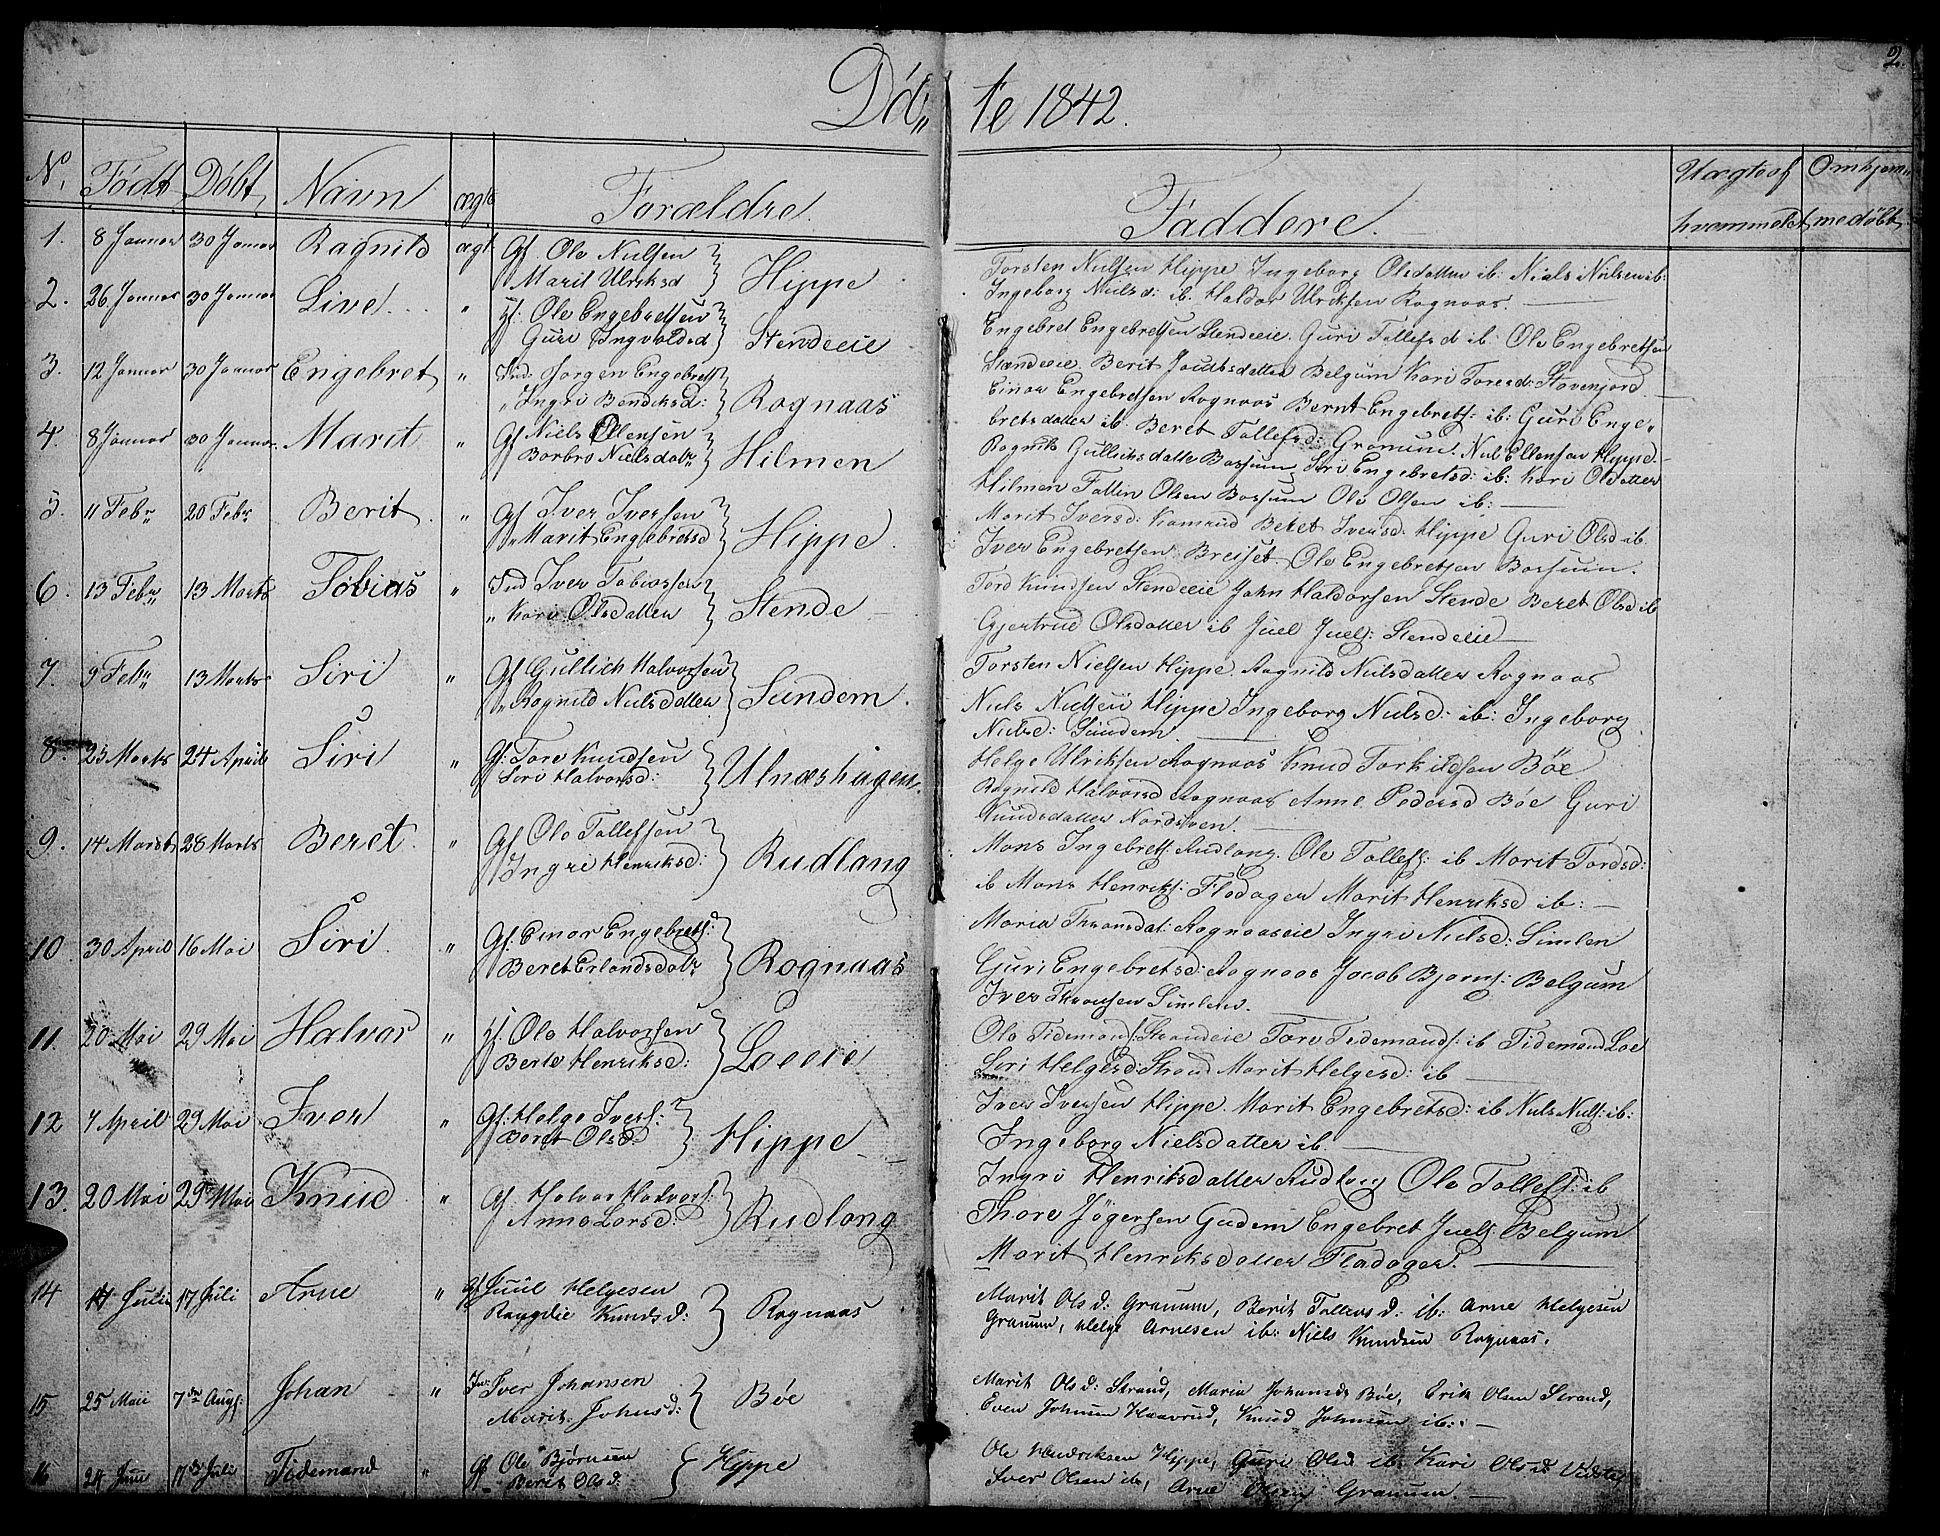 2.
Døb„ te 1842.
No. Født Døbt Navn ægte Forældre. Faddere. Uægte af Omhjem„
hrommelst medøbt
1. 8 Januar 30 Januar Ragnild ægt. Gf. Ole Nielsen
Marit Ulriksd Hippe
Torsten Nielsen Hippe Ingeborg Olsdatter ib: Niels Nielsen ib:
Ingeborg Nielsd: ib. Haldor Ulriksen Rognaas.
2. 26 Januar 30 Januar Live. „ Hf: Ole Engebretsen
Guri Ingvoldsd Stendeeie
Engebret Engebretsen Stendeeie. Guri Tollefsd ib: Ole Engebretsen
Stendeeie. Berit Jacobsdatter Belgum Kari Toresd: Stavenjord.
3. 12 Januar 30 Januar Engebret „ Ind: Jørgen Engebrets
„ Ingri Bendiksd: Rognaas
Einar Engebretsen Rognaas Bernt Engebrets: ib: Guri Enge„
bretsdatter ib. Beret Tollefsd: Gromun. Niel Ellensen Hippe.
4. 8 Januar 30 Januar. Marit „ Gf Niels Ellensen
Borbro Nielsdatr Hilmen
Ragnild Gulliksdatter Bossum, Siri Engebretsd: ib: Kari Olsdatter
Hilmen Tollin Olsen Bossum Ole Olsen ib:
5. 11 Febr„ 20 Febr Berit. „ Gf Iver Iversen
„ Marit Engebretsd Hippe.
Marit Iversd: Kamrud Beret Iversd. Hippe Guri Olsd ib.
Iver Engebretsen Breiset. Ole Engebretsen Bossum.
6. 13 Febr„ 13 Marts Tobias „ Ind Iver Tobiassen
„ Kari Olsdatter Stende
Tord Knudsen Stendeeie John Haldorsen Stende Beret Olsd ib
Gjertrud Olsdatter ib Juel Juels: Stendeeie
7. 9 Febr„ 13 Marts Siri „ Gf Gullich Halvorsen
„ Ragnild Nielsdatter Sundem.
Torsten Nielsen Hippe. Ragnild Nielsdatter Rognaas
Niels Nielsen Hippe Ingeborg Nielsd: ib: Ingeborg
Nielsd: Sundem.
8. 23 Marts 24 April Siri „ Gf: Tore Knudsen
Siri Halvorsd: Ulnæshagen.
Helge Ulriksen Rognaas Knud Torkildsen Bøe
Ragnild Halvorsd Rognaas Anne Pedersd Bøe Guri
Knudsdatter Nordsven.
9. 14 Marst 28 Marts Beret. „ Gf Ole Tollefsen
Ingri Henriksd: Rudlang
Mons Ingebrets: Rudlang. Ole Tollefs: ib Marit Tordsd:
ib Mons Henriks: Flodager Marit Henriksd ib:
10. 30 April 16 Mai Siri. „ Gf. Einar Engebrets:
Beret Erlandsdatr Rognaas
Maria Thronsdat: Rognaaseie Ingri Nielsd: Simlen
Guri Engebretsd: Rognaas Jacob Bjorns: Belgum
Iver Thronsen Simlen.
11. 20 Mai 29 Mai Halvor „ Hf. Ole Halvorsen
Berte Henriksd: Loeeie
Ole Tidemans: Strandeie Tore Tidemands: ib Tidemand Loe
Siri Helgesd: Strand Marit Helgesd: ib
12 7 April 29 Mai Iver „ Gf: Helge Ivers:
Beret Olsd. Hippe
Iver Iversen Hippe. Marit Engebretsd: ib Niels Niels: ib:
Ingeborg Nielsdatter ib
13. 20 Mai 29 Mai Knud „ Gf Halvor Halvors:
Anne Larsd: Rudlang
Ingri Henriksdatter Rudlang Ole Tollefs: ib
Thore Jøgersen Gudem Engebret Juels: Belgum
Marit Henriksdatter Fladager.
14 Julii 17 Juli Arne „ Gf Juul Helgesen
Rangdie Knudsd: Rognaas
Marit Olsd: Granum, Berit Tollevsd: ib: Arne Helgesen
Granum, Helge Arnesen ib: Niels Knudsen Rognaas.
15 25 Maii 7de Augs: Johan „ Ind: Iver Johansen
Marit Johnsd: Bøe
Marit Olsd: Strand, Maria Johansdr Bøe, Erik Olsen Strand,
Even Johnsen Haavrud, Knud Johnsen ib:
16 24 Juni 17de Juli Tidemand „ Gf Ole Bjørnsen
Berit Olsd. Hippe
Ole Hendriksen Hippe, Guri Olsd ib. Kari Olsd:
Iver Olsen ib, Arne Olsen Granum.